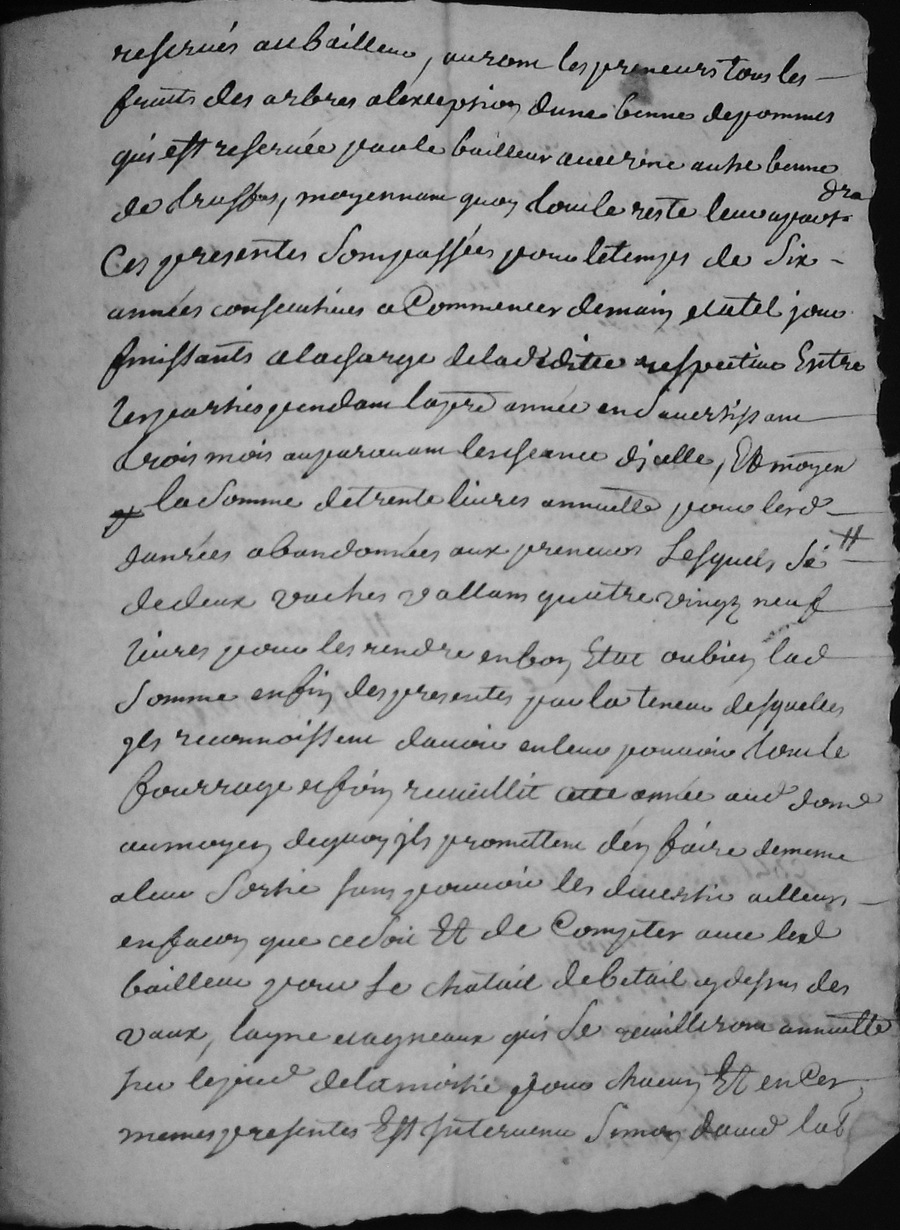 reservés au bailleur, auront les preneurs tous les
fruits des arbres alexception dune benne de pommes
qui est reservée par le bailleur avec une autre benne
de truffes, moyennant quoy tout le reste leur apart
dra
Ces presentes Sont passées pour le temps de Six
années consecutives a Commencer demain et a tel jour
finissants a la charge de la déditte respective Entre
les parties pendant la pre année en Savertissant
trois mois auparavant lescheance dicelle, Et moyen
la Somme de trente livres annuelle pour lesd
danrées abandonnées aux preneurs Lesquels Sé #
de deux vaches vallant quatre vingt neuf
livres pour les rendre en bon Etat ou bien lad
Somme enfin des presentes par la teneur desquelles
ils reconnoissent davoir en leur pouvoir tout le
fourrage et foin recueillit cette année aud dom
au moyen de quoy ils promettent den faire de meme
a leur Sortie sans pouvoir les divertir ailleurs
en facon que ce Soit Et de Compter avec led
bailleur pour le chatail de betail cy dessus des
vaux, layne et agneaux qui Se cuilliront annuelle
sur le pied de la moitié pour chacun Et en Ces
memes presentes Est intervenu Simon david lab